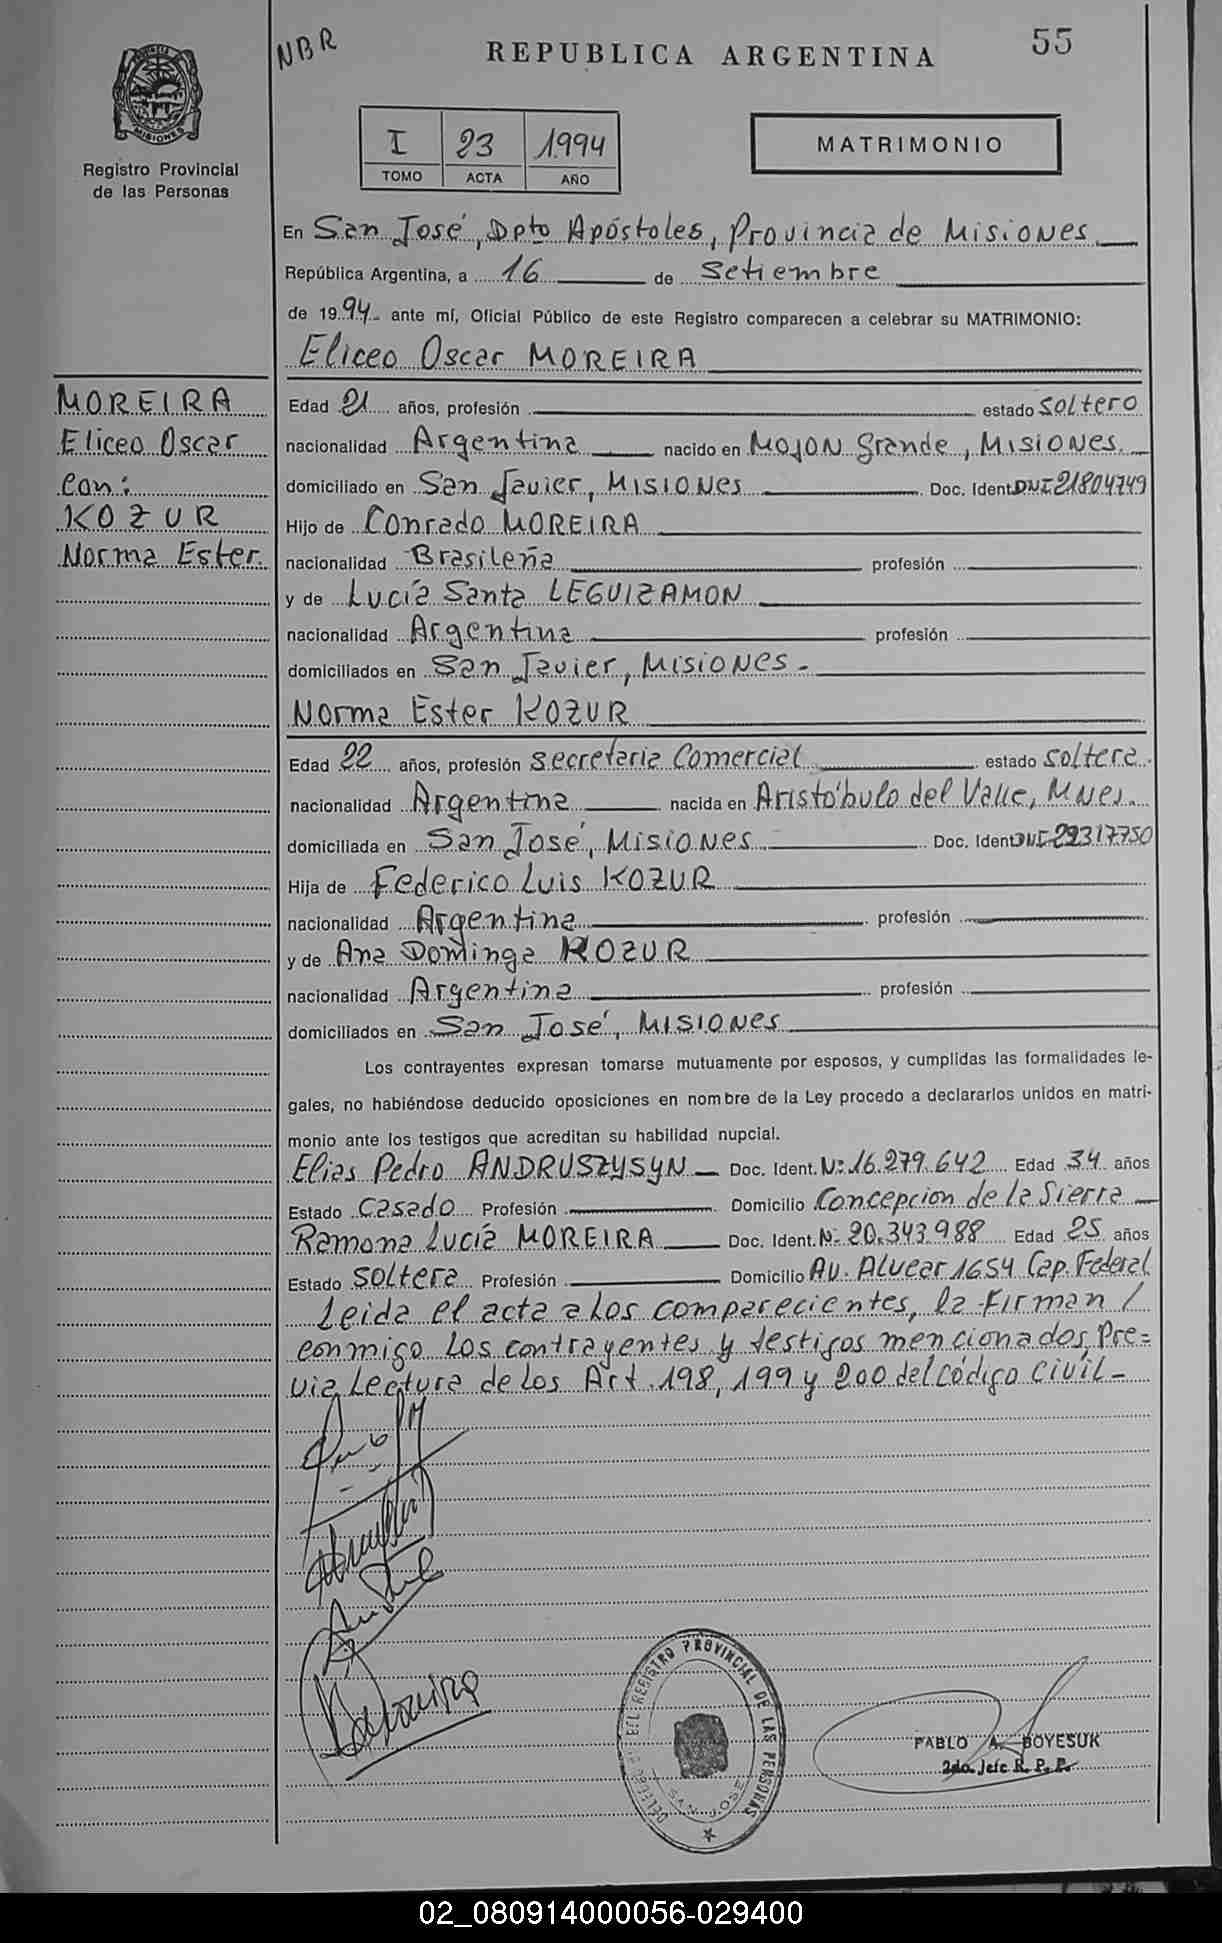 NBR
REPUBLICA ARGENTINA
55
MISIONES
Registro Provincial
de las Personas
I 23 1994
TOMO ACTA AÑO
MATRIMONIO
En San José, Dpto Apóstoles, Provincia de Misiones
República Argentina, a 16 de Setiembre
de 1994 ante mí, Oficial Público de este Registro comparecen a celebrar su MATRIMONIO:
Eliceo Oscar MOREIRA
MOREIRA
Eliceo Oscar
con:
KOZUR
Norma Ester.
Edad 21 años, profesión estado soltero
nacionalidad Argentina nacido en Mojon Grande, Misiones.
domiciliado en San Javier, Misiones Doc. Ident. DNI 21804749
Hijo de Conrado MOREIRA
nacionalidad Brasileña profesión
y de Lucía Santa LEGUIZAMON
nacionalidad Argentina profesión
domiciliados en San Javier, Misiones.
Norma Ester KOZUR
Edad 22 años, profesión secretaria Comercial estado soltera.
nacionalidad Argentina nacida en Aristóbulo del Valle, Mnes.
domiciliada en San José, Misiones Doc. Ident. DNI 22317750
Hija de Federico Luis KOZUR
nacionalidad Argentina profesión
y de Ana Dominga KOZUR
nacionalidad Argentina profesión
domiciliados en San José, Misiones
Los contrayentes expresan tomarse mutuamente por esposos, y cumplidas las formalidades le-
gales, no habiéndose deducido oposiciones en nombre de la Ley procedo a declararlos unidos en matri-
monio ante los testigos que acreditan su habilidad nupcial.
Elias Pedro ANDRUSZYSYN Doc. Ident. Nº 16.279.642 Edad 34 años
Estado Casado Profesión Domicilio Concepcion de la Sierra
Ramona Lucía MOREIRA Doc. Ident. Nº 20.343.988 Edad 25 años
Estado soltera Profesión Domicilio Av. Alvear 1654 Cap. Federal
Leida el acta a los comparecientes, la firman /
conmigo los contrayentes y testigos mencionados, Pre=
via Lectura de los Art. 198, 199 y 200 del Código Civil-
REGISTRO PROVINCIAL DE LAS PERSONAS
SAN JOSE
PABLO A. BOYESUK
2do. Jefe R. P. P.
02_080914000056-029400